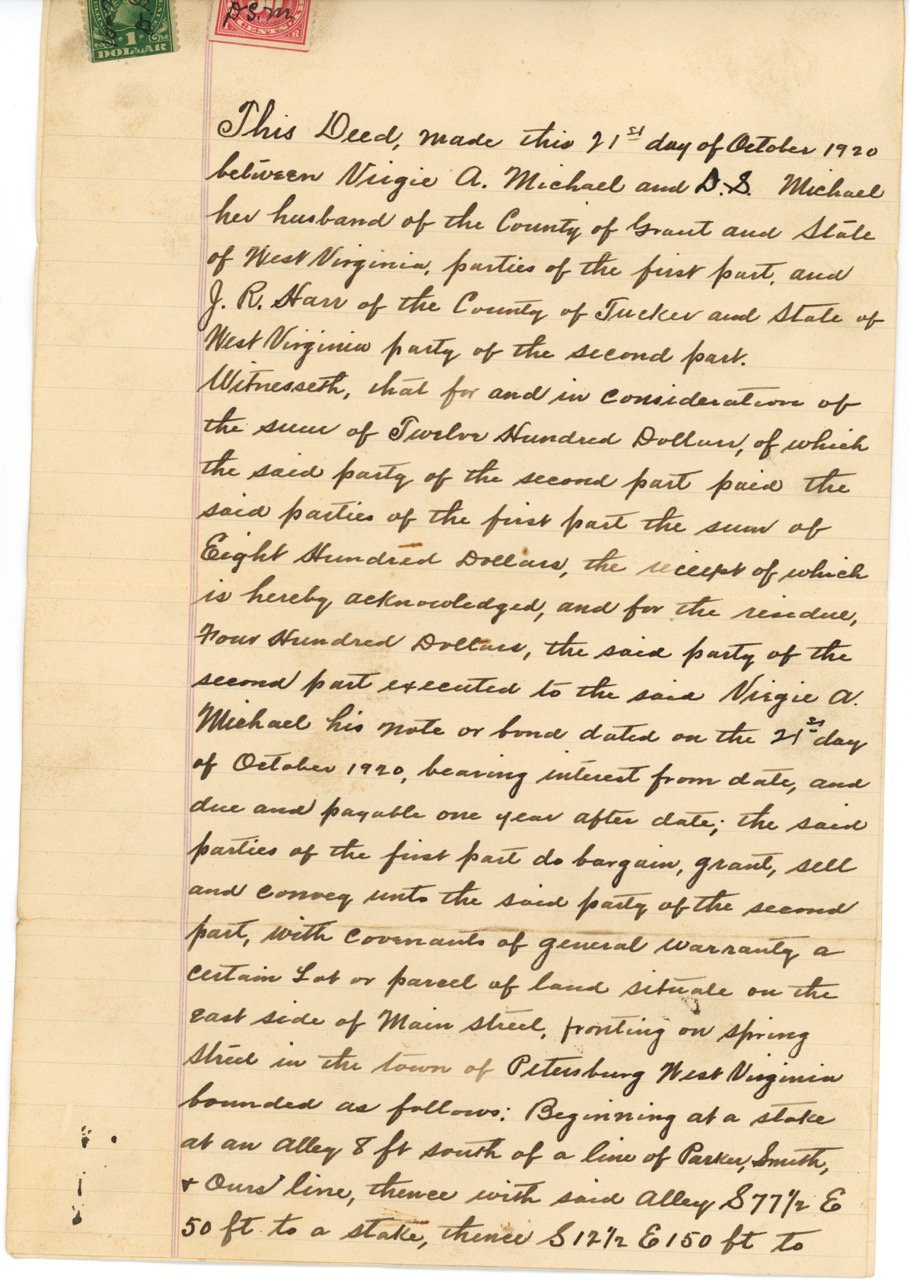 1
DOLLAR
D.S.M.
This Deed, made this 21st day of October 1920
between Virgie A. Michael and D.S. Michael
her husband of the County of Grant and State
of West Virginia, parties of the first part, and
J. R. Harr of the County of Tucker and State of
West Virginia party of the second part.
Witnesseth, that for and in consideration of
the sum of Twelve Hundred Dollars, of which
the said party of the second part paid the
said parties of the first part the sum of
Eight Hundred Dollars, the receipt of which
is hereby acknowledged, and for the residue,
Four Hundred Dollars, the said party of the
second part executed to the said Virgie A.
Michael his note or bond dated on the 21st day
of October 1920, bearing interest from date, and
due and payable one year after date; the said
parties of the first part do bargain, grant, sell
and convey unto the said party of the second
part, with covenants of general warranty a
certain Lot or parcel of land situate on the
east side of Main street, fronting on spring
street in the town of Petersburg West Virginia
bounded as follows: Beginning at a stake
at an Alley 8 ft south of a line of Parker, Smith,
& Ours' line, thence with said Alley S 77½ E
50 ft to a stake, thence S 12½ E 150 ft to